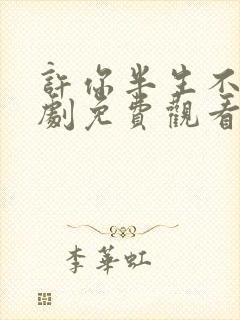 許你半生不
劇免費觀看
李華虹